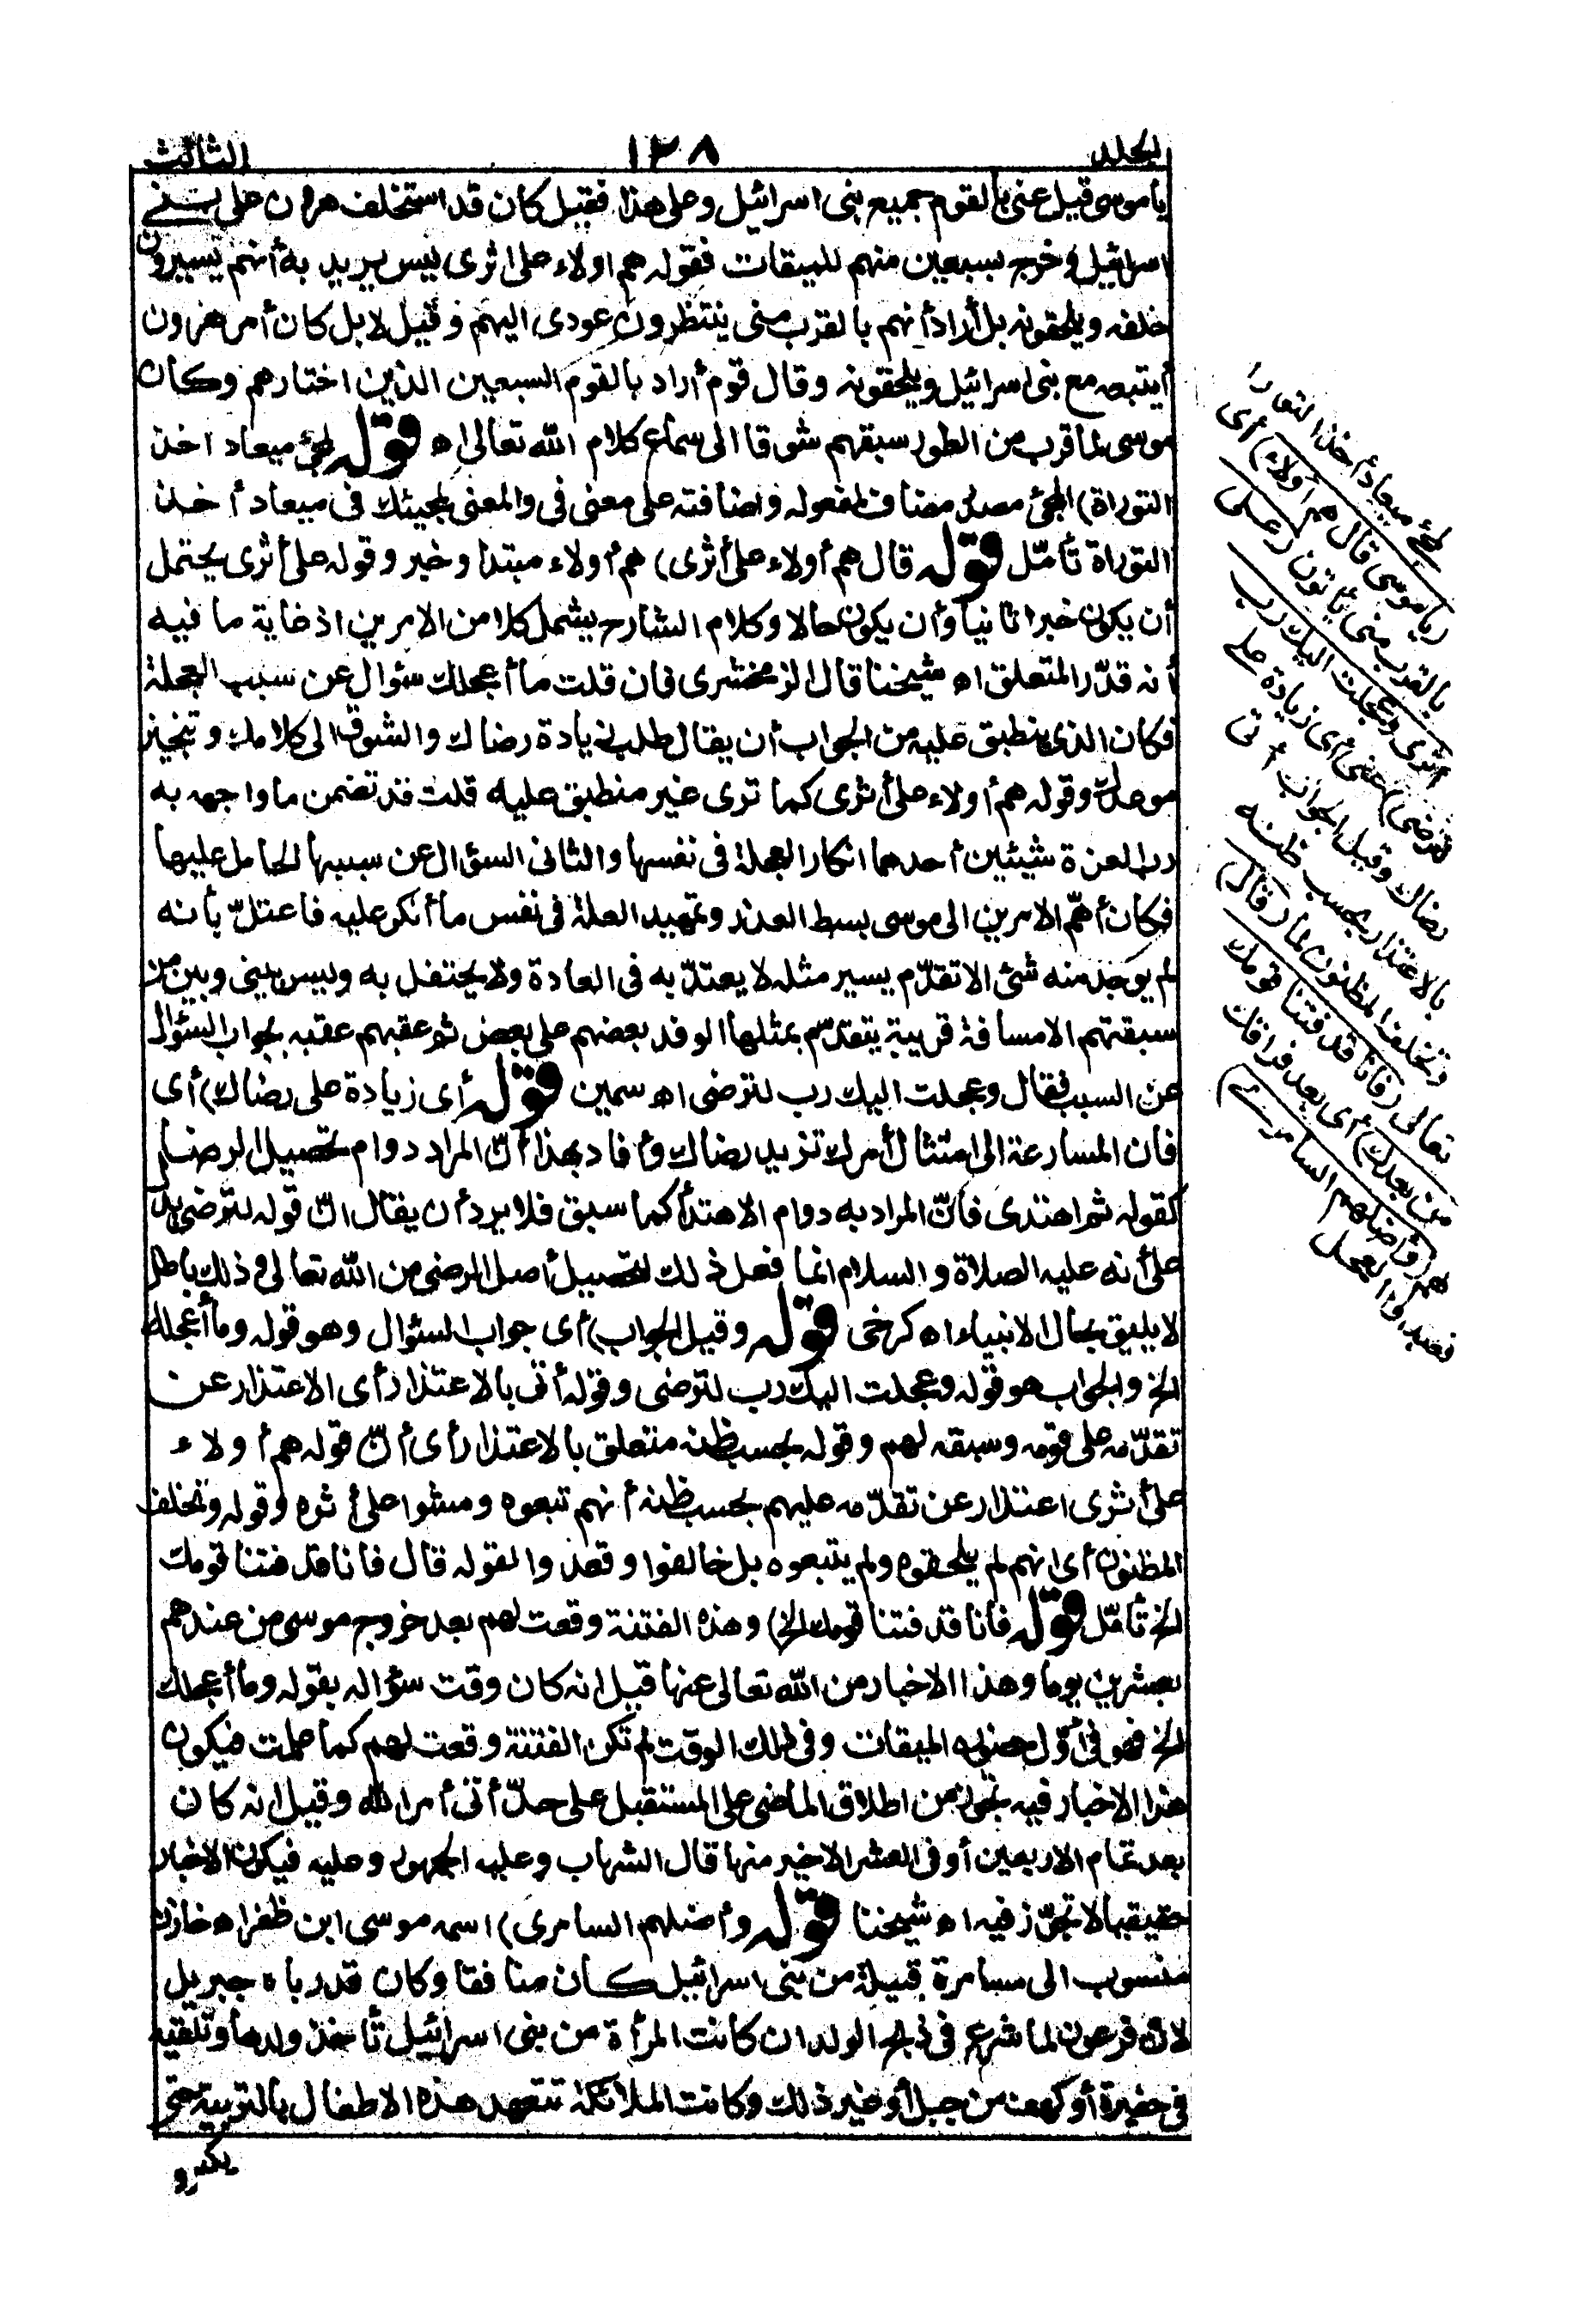 المجلد ١٣٨ الثالث
يا موسى قيل عنى بالقوم جميع بنى اسرائيل وعلى هذا فقيل كان قد استخلف هرون على بنى
اسرائيل وخرج بسبعين منهم للميقات فقوله هم اولاء على اثرى ليس يريد به أنهم يسيرون
خلفه ويلحقونه بل أراد أنهم بالقرب منى ينتظرون عودى اليهم وقيل لا بل كان أمر هرون
أن يتبعه مع بنى اسرائيل ويلحقونه وقال قوم أراد بالقوم السبعين الذين اختارهم وكان
موسى لما قرب من الطور سبقهم شوقا الى سماع كلام الله تعالى اه قوله لمجئ ميعاد اخذ
التوراة) المجئ مصدر مضاف لمفعوله واضافته على معنى فى والمعنى لمجيئك فى ميعاد أخذ
التوراة تأمّل قوله قال هم أولاء على أثرى) هم أولاء مبتدأ وخبر وقوله على أثرى يحتمل
أن يكون خبرا ثانيا وأن يكون حالا وكلام الشارح يشمل كلا من الامرين اذ غاية ما فيه
أنه قدّر المتعلق اه شيخنا قال الزمخشرى فان قلت ما أعجلك سؤال عن سبب العجلة
فكان الذى ينطبق عليه من الجواب أن يقال طلب زيادة رضاك والشوق الى كلامك وتنجيز
موعدك وقوله هم أولاء على أثرى كما ترى غير منطبق عليه قلت قد تضمن ما واجهه به
رب العزة شيئين أحدهما انكار العجلة فى نفسها والثانى السؤال عن سببها الحامل عليها
فكان أهمّ الامرين الى موسى بسط العذر وتمهيد العلة فى نفس ما أنكر عليه فاعتلّ بأنه
لم يوجد منه شئ الا تقدّم يسير مثله لا يعتدّ به فى العادة ولا يحتفل به وليس بينى وبين من
سبقتهم الا مسافة قريبة يتقدّم بمثلها الوفد بعضهم على بعض ثم عقبهم عقبه بجواب السؤال
عن السبب فقال وعجلت اليك رب لترضى اه سمين قوله أى زيادة على رضاك) أى
فان المسارعة الى امتثال أمرك تزيد رضاك وأفاد بهذا أنّ المراد دوام تحصيل الرضا
كقوله ثم اهتدى فانّ المراد به دوام الاهتداء كما سبق فلا يرد أن يقال انّ قوله لترضى يدل
على أنه عليه الصلاة والسلام انما فعل ذلك لتحصيل أصل الرضى من الله تعالى وذلك باطل
لا يليق بحال الانبياء اه كرخى قوله وقيل الجواب) أى جواب السؤال وهو قوله وما أعجلك
الخ والجواب هو قوله وعجلت اليك رب لترضى وقوله أتى بالاعتذار أى الاعتذار عن
تقدّمه على قومه وسبقه لهم وقوله بحسب ظنه متعلق بالاعتذار أى أنّ قوله هم أولاء
على أثرى اعتذار عن تقدّمه عليهم بحسب ظنه أنهم تبعوه ومشوا على أثره وقوله وتخلف
المظنون أى انهم لم يلحقوه ولم يتبعوه بل خالفوا وقعدوا لقوله قال فانا قد فتنا قومك
الخ تأمّل قوله فانا قد فتنا قومك الخ) وهذه الفتنة وقعت لهم بعد خروج موسى من عندهم
بعشرين يوما وهذا الاخبار من الله تعالى عنها قيل انه كان وقت سؤاله بقوله وما أعجلك
الخ فهو فى أوّل حضوره الميقات وفى ذلك الوقت لم تكن الفتنة وقعت لهم كما علمت فيكون
هذا الاخبار فيه تجوّز من اطلاق الماضى على المستقبل على حدّ أتى أمر الله وقيل انه كان
بعد تمام الاربعين أو فى العشر الاخير منها قال الشهاب وعليه الجمهور وعليه فيكون الاخبار
حقيقيا لا تجوّز فيه اه شيخنا قوله وأضلهم السامرى) اسمه موسى ابن ظفر اه خازن
منسوب الى سامرة قبيلة من بنى اسرائيل كان منافقا وكان قد رباه جبريل
لانّ فرعون لما شرع فى ذبح الولدان كانت المرأة من بنى اسرائيل تأخذ ولدها وتلقيه
فى حفيرة أو كهف من جبل أو غير ذلك وكانت الملائكة تتعهد هذه الاطفال بالتربية حتى
يكبروا
لمجئ ميعاد أخذ التوراة
(يا موسى قال هم أولاء) أى
بالقرب منى يأتون (على
أثرى وعجلت اليك رب
لترضى) عنى أى زيادة على
رضاك وقيل الجواب أتى
بالاعتذار بحسب ظنه
وتخلف المظنون لما (قال)
تعالى (فانا قد فتنا قومك
من بعدك) أى بعد فراقك
لهم (وأضلهم السامرى)
فعبدوا العجل